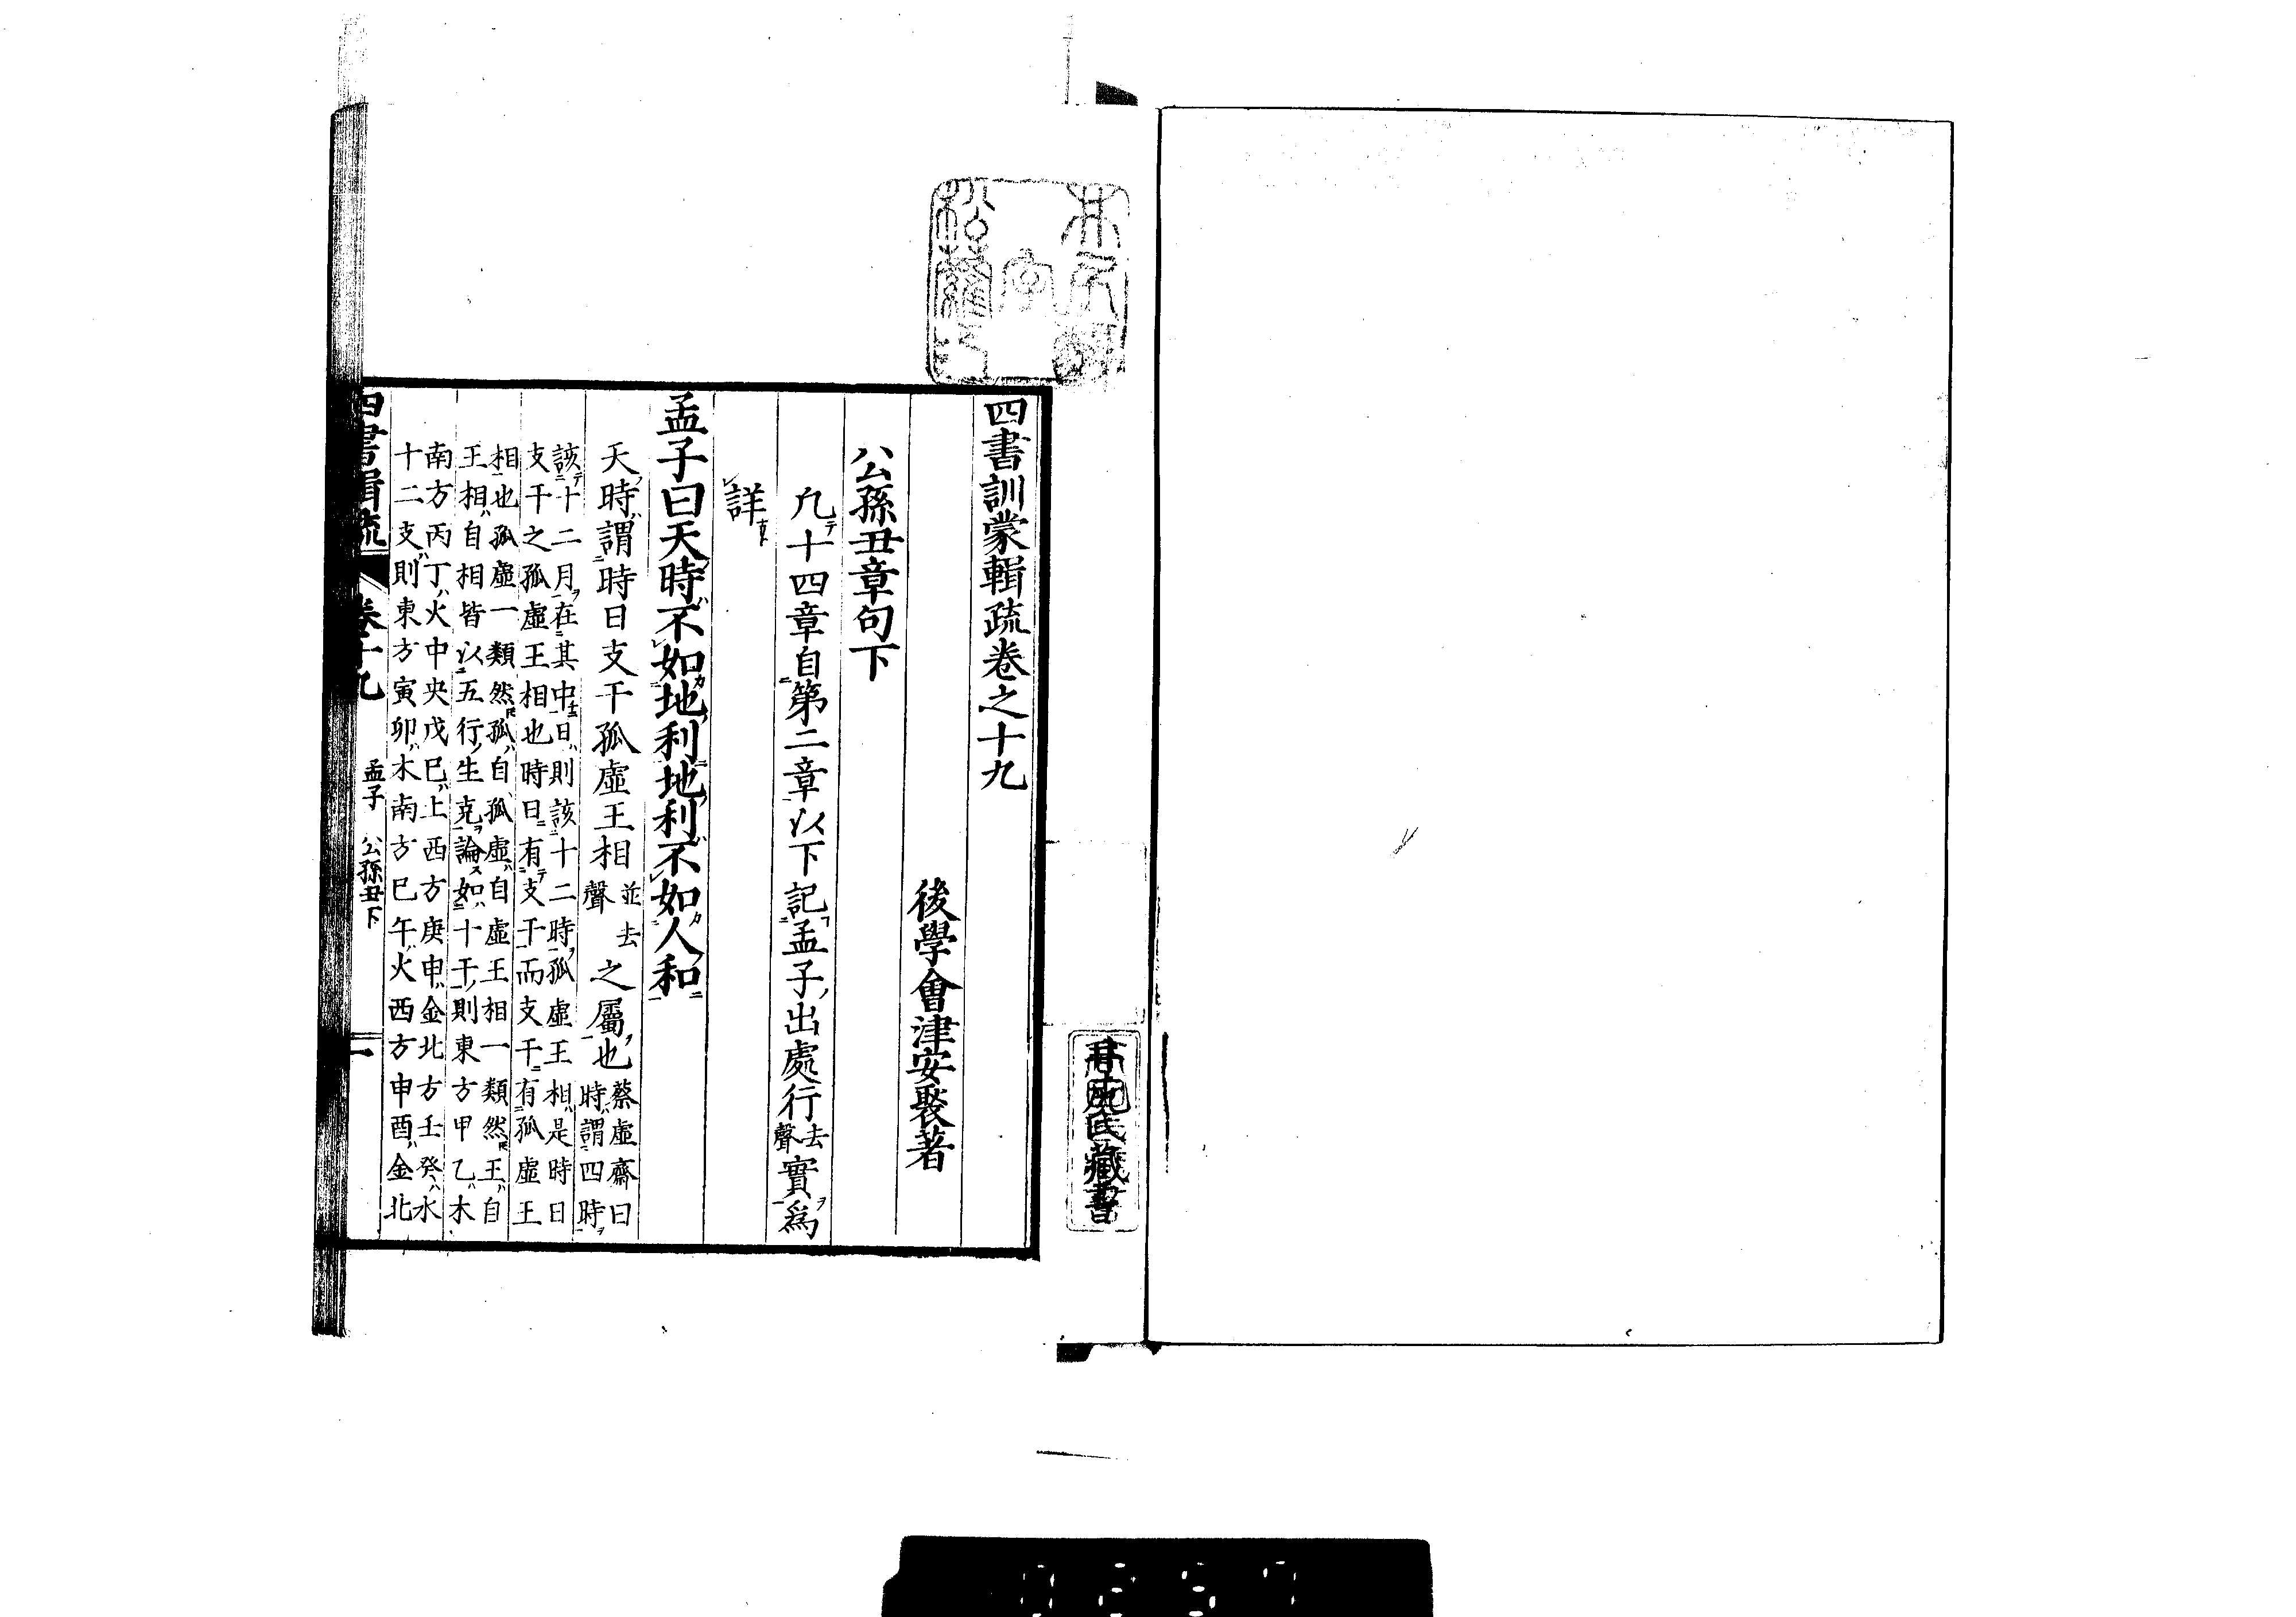 四書訓蒙輯疏卷之十九
後學會津安褧著
公孫丑章句下
凢十四章自第二章以下記孟子出處行去聲實爲
詳
孟子曰天時不如地利地利不如人和
天時謂時日支干孤虛王相並去聲之屬也蔡虛齋曰時謂四時
該十二月在其中日則該十二時孤虛王相是時日
支干之孤虛王相也時日有支干而支干有孤虛王
相也孤虛一類然孤自孤虛自虛王相一類然王自
王相自相皆以五行生克論如十干則東方甲乙木
南方丙丁火中央戊巳土西方庚申金北方壬癸水
十二支則東方寅卯木南方巳午火西方申酉金北
四書輯疏 卷十九 孟子 公孫丑下 一
氏藏書